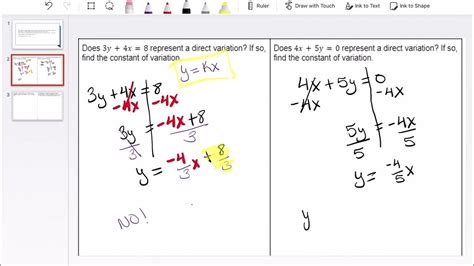 Draw
Ink to Text
Ink to Shape
1
2
3
Does 3y + 4x = 8 represent a direct variation? If so,
find the constant of variation.
y = Kx
3y + 4x = 8
-4x -4x
3y = -4x+8
3 3
y = -4/3 x + 8/3
NO!
Does 4x + 5y = 0 represent a direct variation? If so,
find the constant of variation.
4x + 5y = 0
-4x -4x
5y = -4x
5 5
y = -4/5 x
y